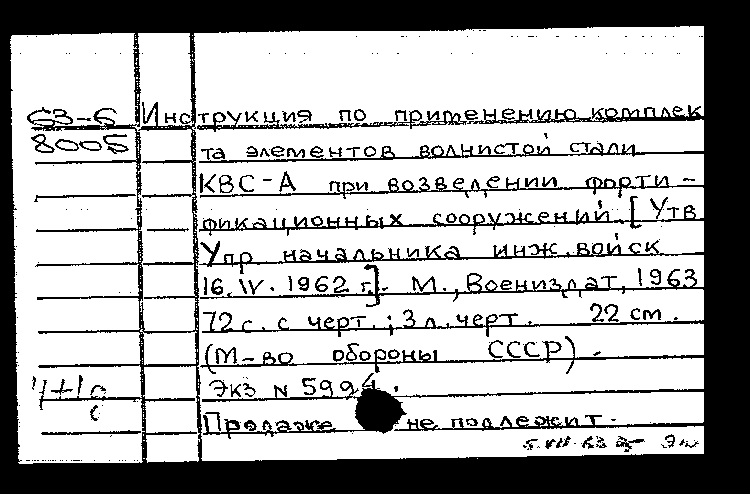 63-6 Инструкция по применению комплек
8005 та элементов волнистой стали
КВС-А при возведении форти-
фикационных сооружений. [Утв
Упр начальника инж. войск
16.IV.1962 г.]. М., Воениздат, 1963
72 с. с черт.; 3 л. черт. 22 см.
(М-во обороны СССР).
Экз N 5994.
Продаже не подлежит.
5.VII.63